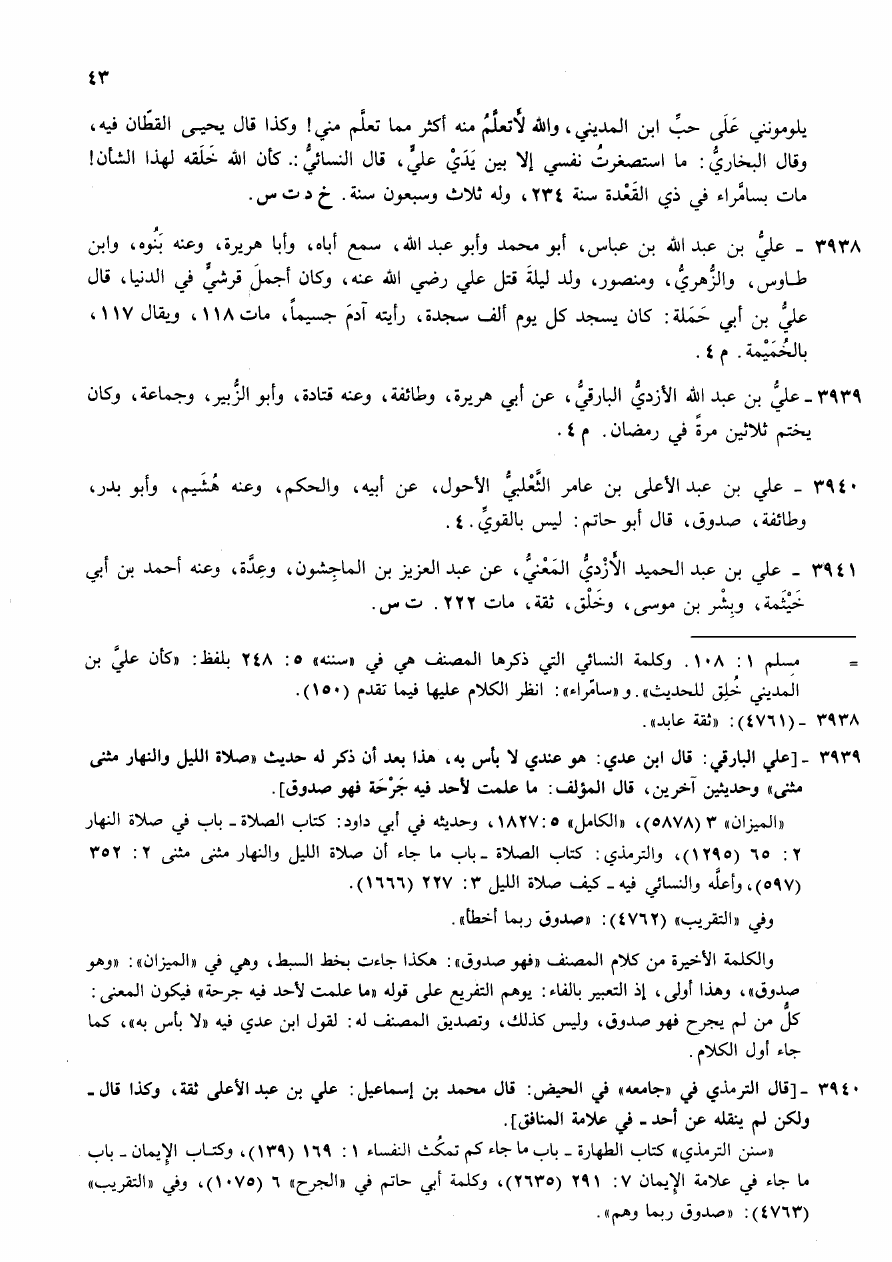 ٤٣
يلومونني عَلَى حبِّ ابن المديني، والله لأتعلَّمُ منه أكثر مما تعلَّم مني! وكذا قال يحيى القطّان فيه،
وقال البخاريُّ: ما استصغرتُ نفسي إلا بين يَدَيْ عليٍّ، قال النسائيُّ:. كأن الله خَلَقه لهذا الشأن!
مات بسامَّراء في ذي القَعْدة سنة ٢٣٤، وله ثلاث وسبعون سنة. خ د ت س.
٣٩٣٨ - عليُّ بن عبد الله بن عباس، أبو محمد وأبو عبد الله، سمع أباه، وأبا هريرة، وعنه بَنُوه، وابن
طاوس، والزُّهريُّ، ومنصور، ولد ليلةَ قتل علي رضي الله عنه، وكان أجملَ قرشيٍّ في الدنيا، قال
عليُّ بن أبي حَمَلة: كان يسجد كل يوم ألف سجدة، رأيته آدمَ جسيماً، مات ١١٨، ويقال ١١٧،
بالحُمَيْمة. م ٤.
٣٩٣٩ - عليُّ بن عبد الله الأزديُّ البارقيُّ، عن أبي هريرة، وطائفة، وعنه قتادة، وأبو الزُّبير، وجماعة، وكان
يختم ثلاثين مرةً في رمضان. م ٤.
٣٩٤٠ - علي بن عبد الأعلى بن عامر الثَّعْلبيُّ الأحول، عن أبيه، والحكم، وعنه هُشَيم، وأبو بدر،
وطائفة، صدوق، قال أبو حاتم: ليس بالقويِّ. ٤.
٣٩٤١ - علي بن عبد الحميد الأَزْديُّ المَعْنيُّ، عن عبد العزيز بن الماجِشون، وعِدَّة، وعنه أحمد بن أبي
خَيْثَمة، وبِشْر بن موسى، وخَلْق، ثقة، مات ٢٢٢. ت س.
= مسلم ١: ١٠٨. وكلمة النسائي التي ذكرها المصنف هي في «سننه» ٥: ٢٤٨ بلفظ: «كأن عليَّ بن
المديني خُلِق للحديث». و «سامّراء»: انظر الكلام عليها فيما تقدم (١٥٠).
٣٩٣٨ - (٤٧٦١): «ثقة عابد».
٣٩٣٩ - [علي البارقي: قال ابن عدي: هو عندي لا بأس به، هذا بعد أن ذكر له حديث «صلاة الليل والنهار مثنى
مثنى» وحديثين آخرين، قال المؤلف: ما علمت لأحد فيه جَرْحَة فهو صدوق].
«الميزان» ٣ (٥٨٧٨)، «الكامل» ٥: ١٨٢٧، وحديثه في أبي داود: كتاب الصلاة - باب في صلاة النهار
٢: ٦٥ (١٢٩٥)، والترمذي: كتاب الصلاة - باب ما جاء أن صلاة الليل والنهار مثنى مثنى ٢: ٣٥٢
(٥٩٧)، وأعلَّه والنسائي فيه - كيف صلاة الليل ٣: ٢٢٧ (١٦٦٦).
وفي «التقريب» (٤٧٦٢): «صدوق ربما أخطأ».
والكلمة الأخيرة من كلام المصنف «فهو صدوق»: هكذا جاءت بخط السبط، وهي في «الميزان»: «وهو
صدوق»، وهذا أولى، إذ التعبير بالفاء: يوهم التفريع على قوله «ما علمت لأحد فيه جرحة» فيكون المعنى:
كلُّ من لم يجرح فهو صدوق، وليس كذلك، وتصديق المصنف له: لقول ابن عدي فيه «لا بأس به»، كما
جاء أول الكلام.
٣٩٤٠ - [قال الترمذي في «جامعه» في الحيض: قال محمد بن إسماعيل: علي بن عبد الأعلى ثقة، وكذا قال -
ولكن لم ينقله عن أحد - في علامة المنافق].
«سنن الترمذي» كتاب الطهارة - باب ما جاء كم تمكُث النفساء ١: ١٦٩ (١٣٩)، وكتاب الإيمان - باب
ما جاء في علامة الإيمان ٧: ٢٩١ (٢٦٣٥)، وكلمة أبي حاتم في «الجرح» ٦ (١٠٧٥)، وفي «التقريب»
(٤٧٦٣): «صدوق ربما وهم».